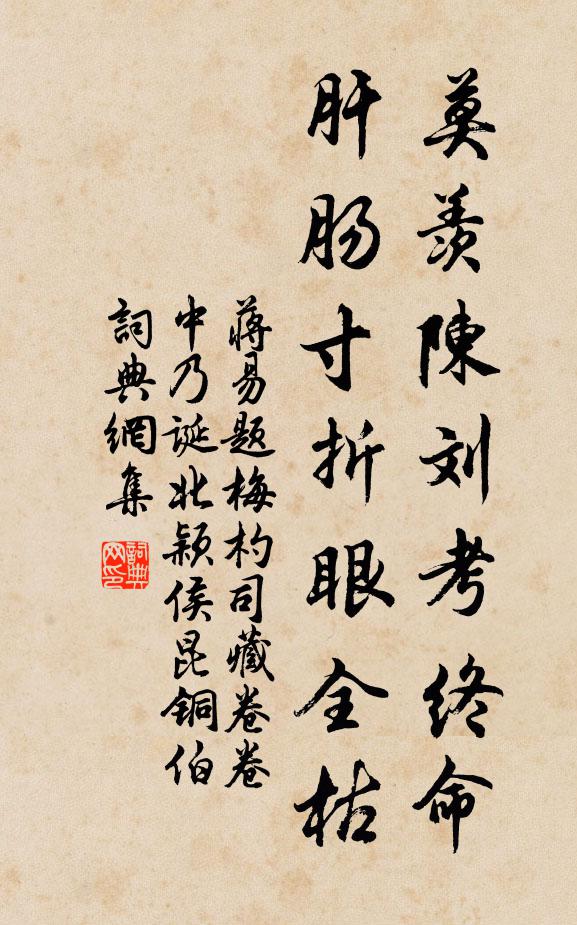 莫羨陳刘考终命
肝肠寸折眼全枯
蔣易題梅杓司藏卷卷
中乃诞北颖侯昆铜伯
詞典網集
詞典网印